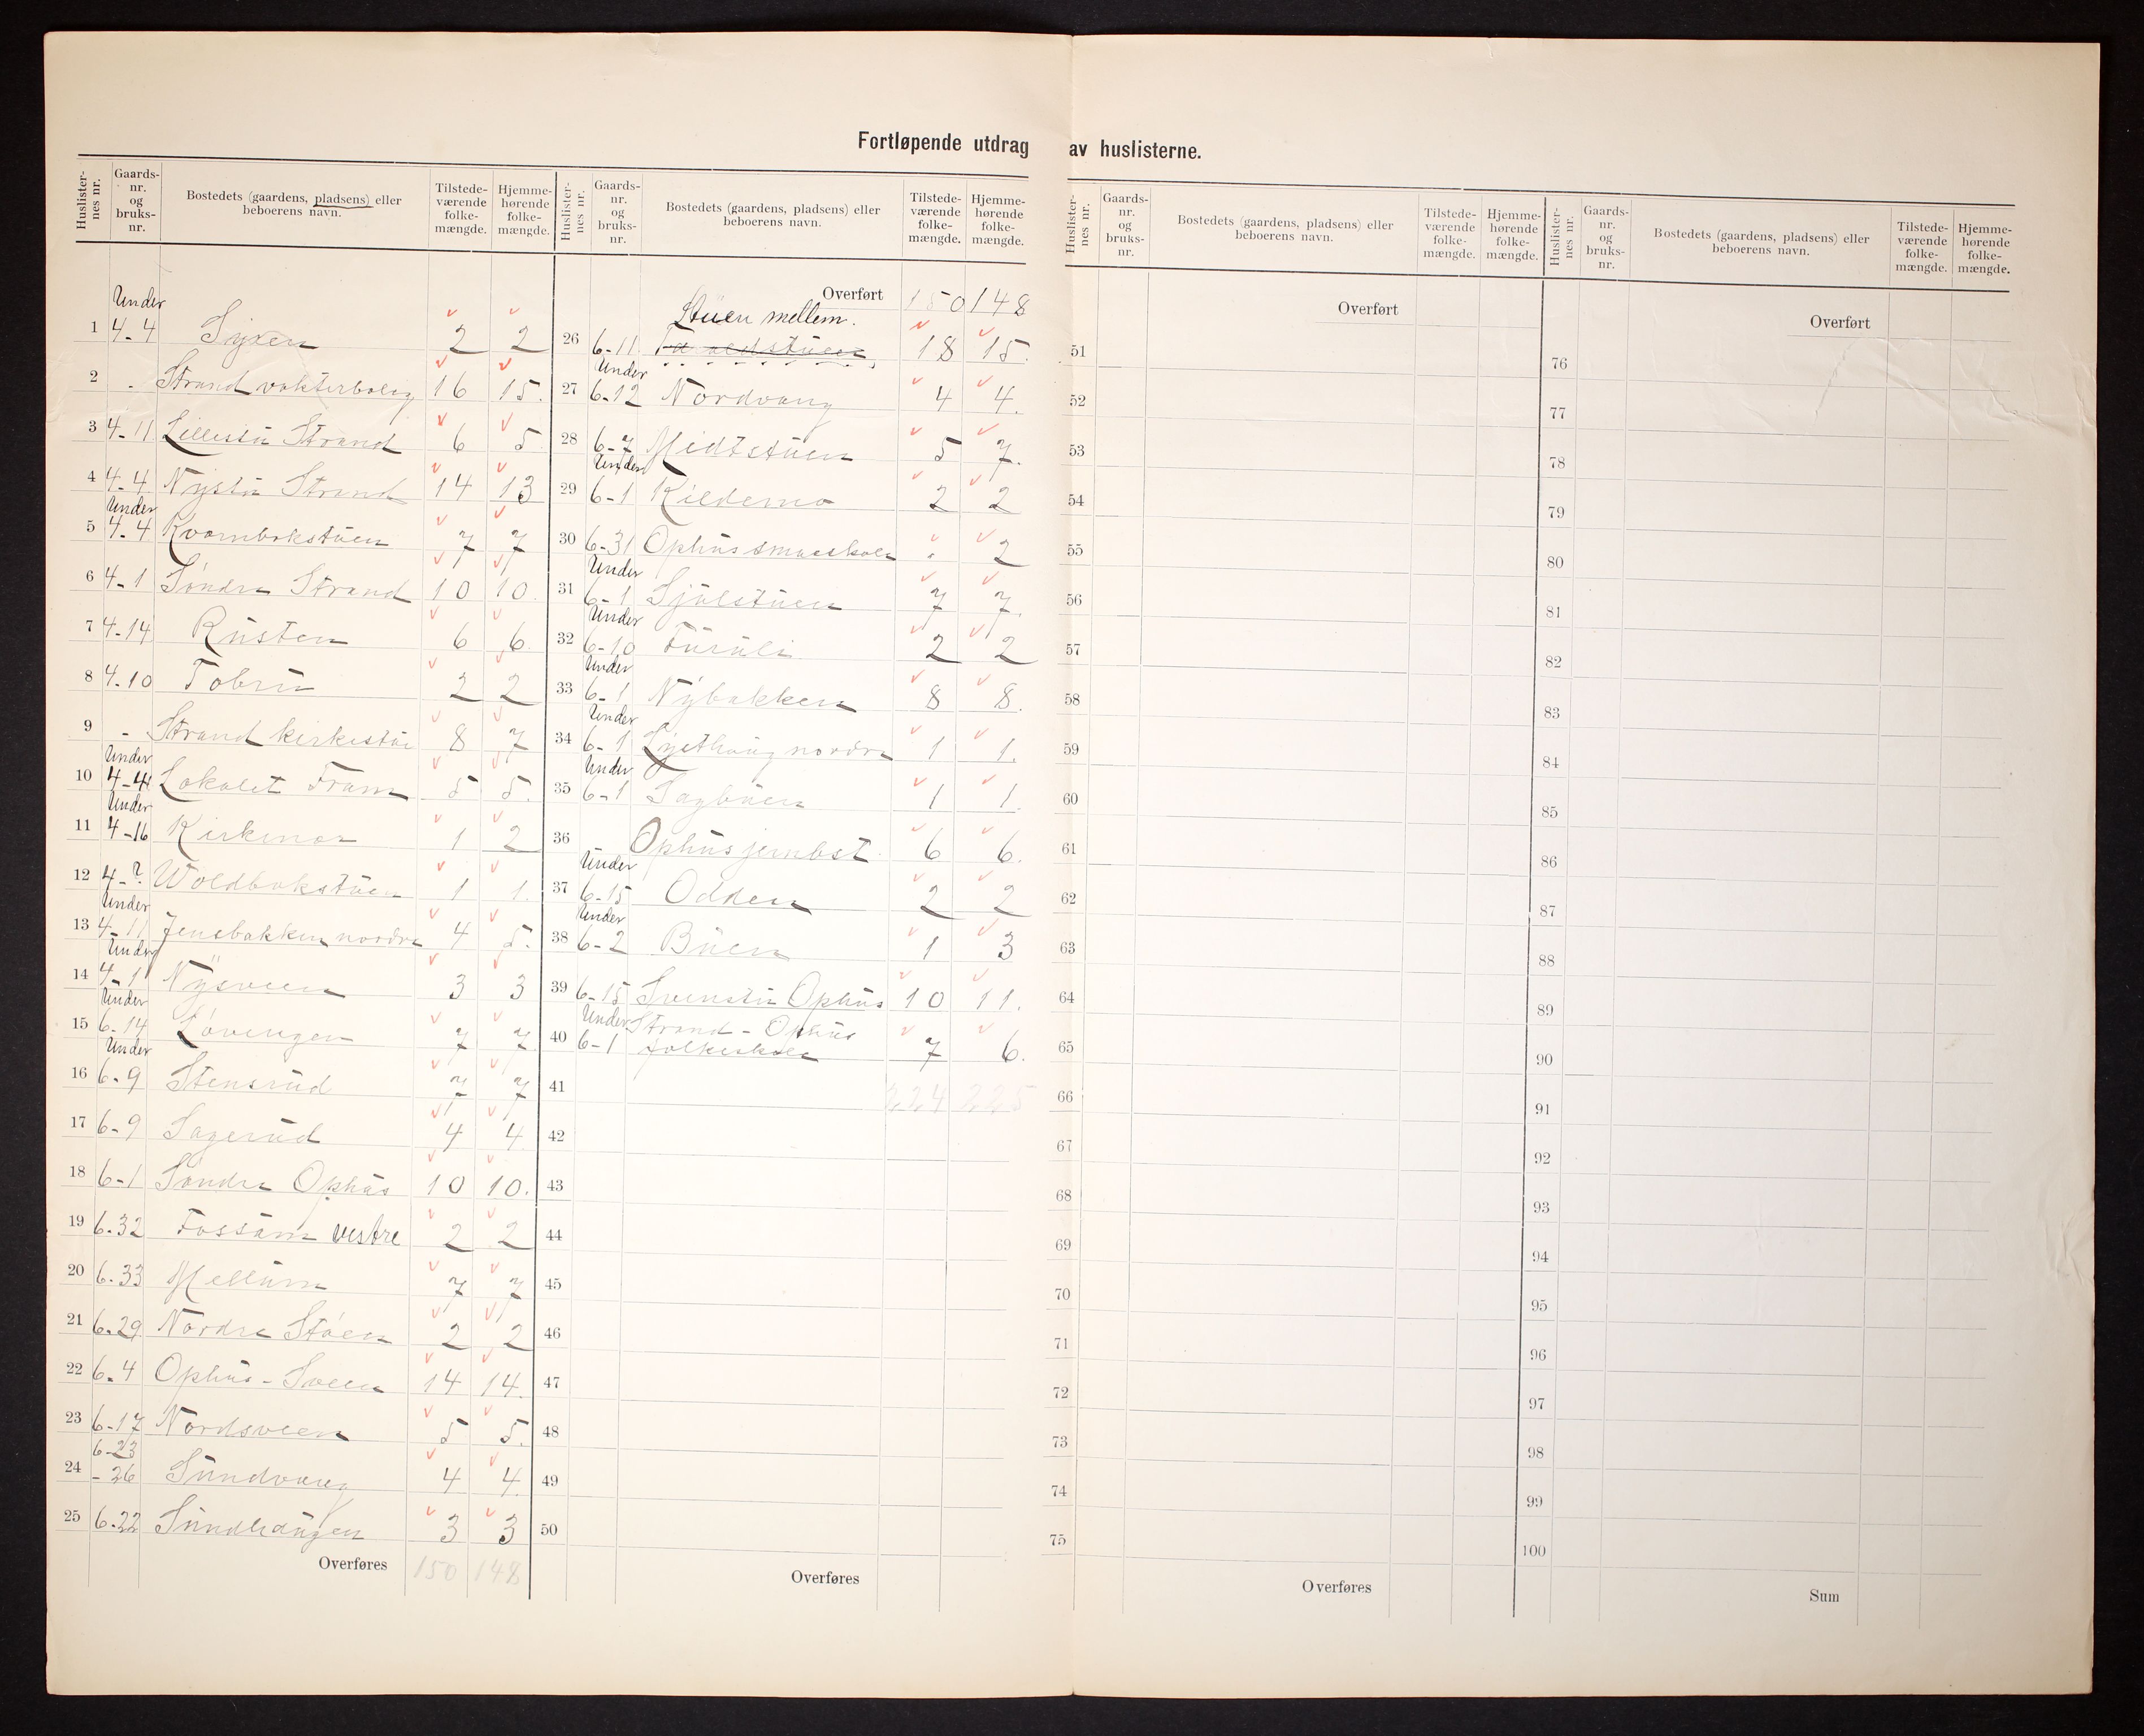 Fortløpende utdrag av huslisterne.
Huslisternes nr. Gaards-nr. og bruks-nr. Bostedets (gaardens, pladsens) eller beboerens navn. Tilstede-værende folke-mængde. Hjemme-hørende folke-mængde.
Under
1 4-4 2 2
2 - Strand vokterbolig 16 15.
3 4-11 Lillestu Strand 6 5
4 4-4 Nystu Strand 14 13
Under
5 4-4 Kvornbekstuen 7 7
6 4-1 Søndre Strand 10 10.
7 4-14 Rusten 6 6
8 4.10 Tobru 2 2
9 - Strand kirkestue 8 7
Under
10 4-4 Lokalet Fram 5 5.
Under
11 4-16 Kirkemo 1 2
12 4-? Woldbakstuen 1 1.
Under
13 4-11 Jensbakken nordre 4 5.
Under
14 4-1 Nysveen 3 3
Under
15 6-14 Løvengen 7 7
Under
16 6-9 Stensrud 7 7
17 6-9 Sagerud 4 4
18 6-1 Søndre Ophus 10 10.
19 6.32 Fossum vestre 2 2
20 6.33 Mellum 7 7
21 6.29 Nordre Støen 2 2
22 6.4 Ophus-Sveen 14 14.
23 6-17 Nordsveen 5 5.
6-23
24 -26 Sundvang 4 4
25 6.22 Sundhaugen 3 3
Overføres 150 148
Huslisternes nr. Gaards-nr. og bruks-nr. Bostedets (gaardens, pladsens) eller beboerens navn. Tilstede-værende folke-mængde. Hjemme-hørende folke-mængde.
Overført 150 148
Stuen mellem.
26 6-11 18 15.
Under
27 6-12 Nordvang 4 4.
28 6-7 Midtstuen 5 7.
Under
29 6-1 Kildemo 2 2
30 6-31 Ophus smaaskole - 2
Under
31 6-1 Sjulstuen 7 7.
Under
32 6-10 Furuli 2 2
Under
33 6-1 Nybakken 8 8.
Under
34 6-1 Lysthaug nordre 1 1.
Under
35 6-1 Sagbuen 1 1.
36 Ophus jernbst. 6 6.
Under
37 6-15 Odden 2 2
Under
38 6-2 Buen 1 3
39 6-15 Svenstu Ophus 10 11.
Under Strand-Ophus
40 6-1 folkeskole 7 6.
41 224 225
42
43
44
45
46
47
48
49
50
Overføres
Huslisternes nr. Gaards-nr. og bruks-nr. Bostedets (gaardens, pladsens) eller beboerens navn. Tilstede-værende folke-mængde. Hjemme-hørende folke-mængde.
Overført
51
52
53
54
55
56
57
58
59
60
61
62
63
64
65
66
67
68
69
70
71
72
73
74
75
Overføres
Huslisternes nr. Gaards-nr. og bruks-nr. Bostedets (gaardens, pladsens) eller beboerens navn. Tilstede-værende folke-mængde. Hjemme-hørende folke-mængde.
Overført
76
77
78
79
80
81
82
83
84
85
86
87
88
89
90
91
92
93
94
95
96
97
98
99
100
Sum